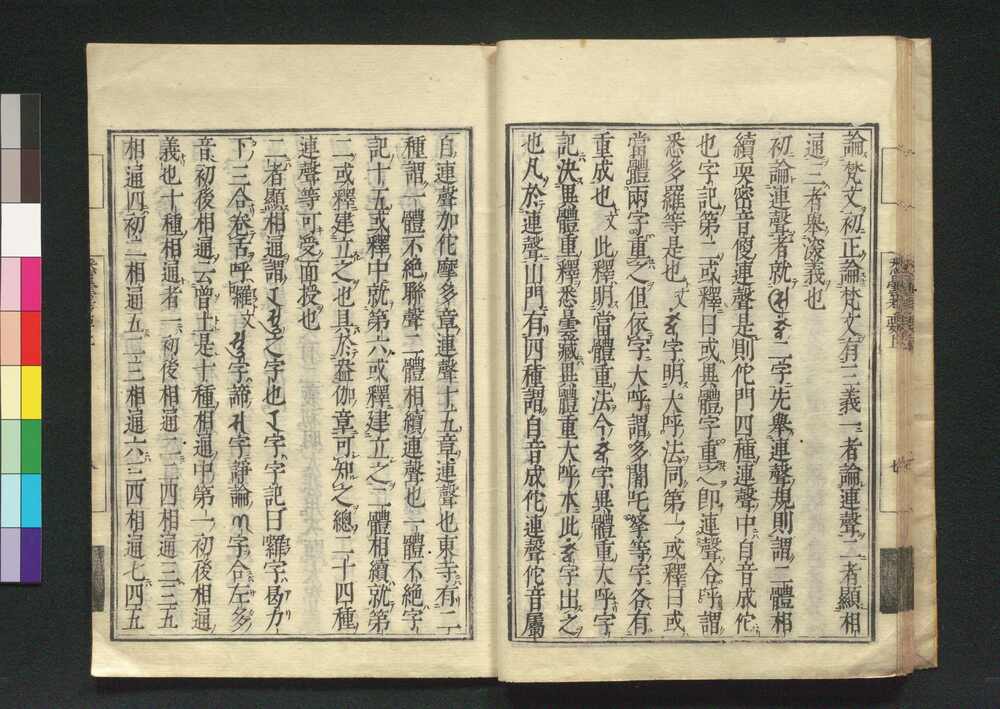 論梵文初正論梵文有三義一者論連聲二者顯相
通三者舉深義也
初論連聲者就二字先舉連聲規則謂二體相
續耎密音傻連聲是則佗門四種連聲中自音成佗
也字記第二或釋曰或異體字重之即連聲合呼謂
悉多羅等是也文字明大呼法同第一或釋曰或
當體兩字重之但依字大呼謂多闍吒拏等字各有
重成也文此釋明當體重法今字異體重大呼字
記決異體重釋悉曇藏異體重大呼本此字出之
也凡於連聲山門有四種謂自音成佗連聲佗音屬
自連聲加佗摩多章連聲十五章連聲也東寺有二
種謂一體不絶聯聲二體相續連聲也一體不絶字
記十五或釋中就第六或釋建立之二體相續就第
二或釋建立之也具於盎伽章可知之總二十四種
連聲等可受面授也
二者顯相通謂之字也字字記曰羅字曷力
下三合卷舌呼羅文字諦字諍論字合左多
音初後相通云曾上是十種相通中第一初後相通
義也十種相通者一初後相通二二四相通三三五
相通四初二相通五二三相通六三四相通七四五